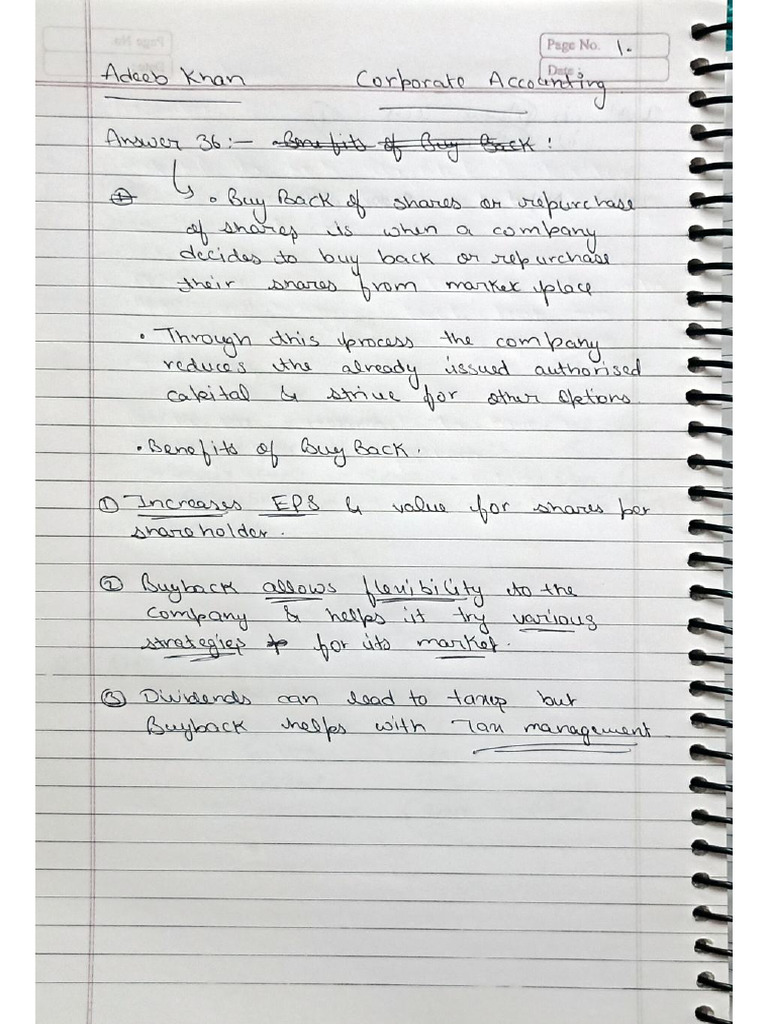 Page No. 1.
Date :
Adeeb Khan Corporate Accounting
Answer 36:- Benefits of Buy Back :
① • Buy Back of shares or repurchase
of shares is when a company
decides to buy back or repurchase
their shares from market place
• Through this process the company
reduces the already issued authorised
capital & strive for other options
• Benefits of Buy Back.
① Increases EPS & value for shares per
shareholder.
② Buyback allows flexibility to the
company & helps it try various
strategies for its market.
③ Dividends can lead to taxes but
Buyback helps with Tax management.